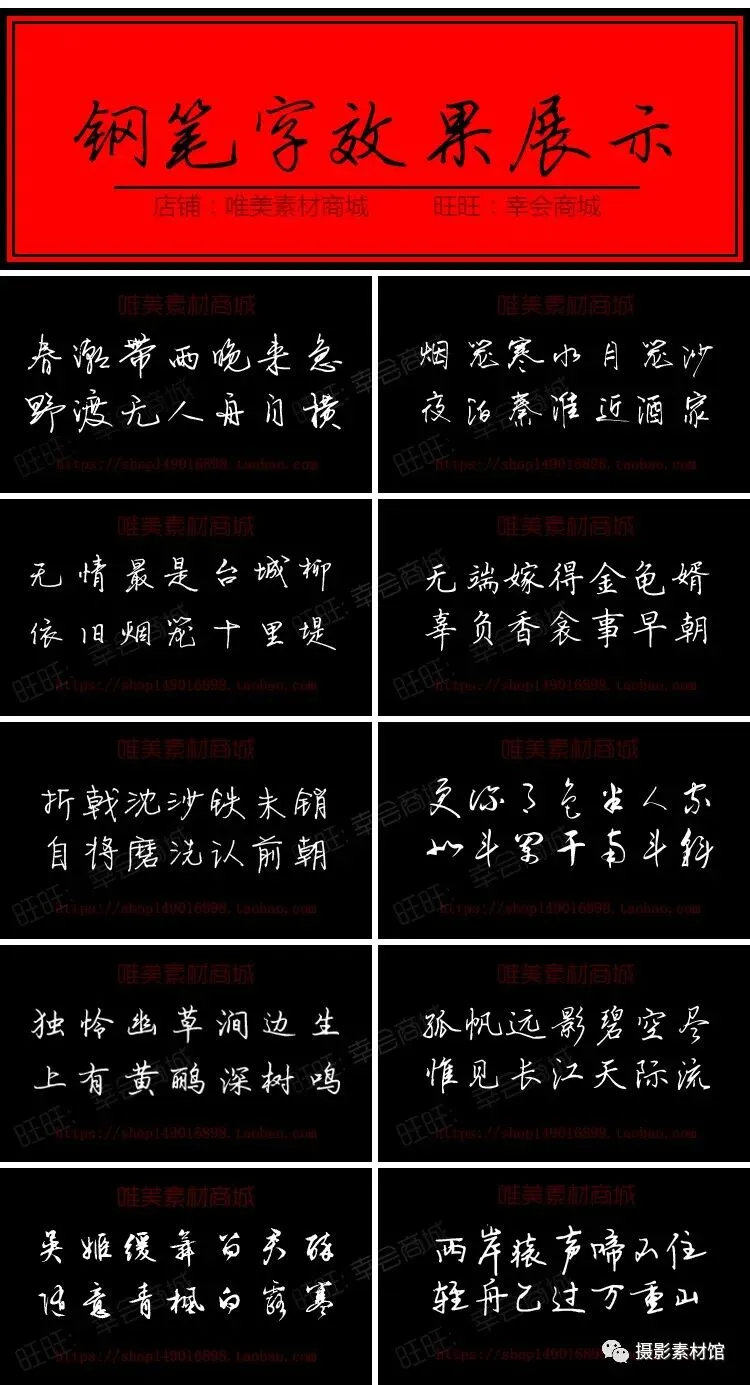 钢笔字效果展示
店铺：唯美素材商城 旺旺：幸会商城
唯美素材商城
春潮带雨晚来急
野渡无人舟自横
旺旺：幸会商城
https://shop149016898.taobao.com
唯美素材商城
烟笼寒水月笼沙
夜泊秦淮近酒家
旺旺：幸会商城
https://shop149016898.taobao.com
唯美素材商城
无情最是台城柳
依旧烟笼十里堤
旺旺：幸会商城
https://shop149016898.taobao.com
唯美素材商城
无端嫁得金龟婿
辜负香衾事早朝
旺旺：幸会商城
https://shop149016898.taobao.com
唯美素材商城
折戟沈沙铁未销
自将磨洗认前朝
旺旺：幸会商城
https://shop149016898.taobao.com
唯美素材商城
更深月色半人家
北斗阑干南斗斜
旺旺：幸会商城
https://shop149016898.taobao.com
唯美素材商城
独怜幽草涧边生
上有黄鹂深树鸣
旺旺：幸会商城
https://shop149016898.taobao.com
唯美素材商城
孤帆远影碧空尽
惟见长江天际流
旺旺：幸会商城
https://shop149016898.taobao.com
唯美素材商城
吴姬缓舞留君醉
随意青枫白露寒
旺旺：幸会商城
https://shop149016898.taobao.com
唯美素材商城
两岸猿声啼不住
轻舟已过万重山
旺旺：幸会商城
https://shop149016898.taobao.com
摄影素材馆